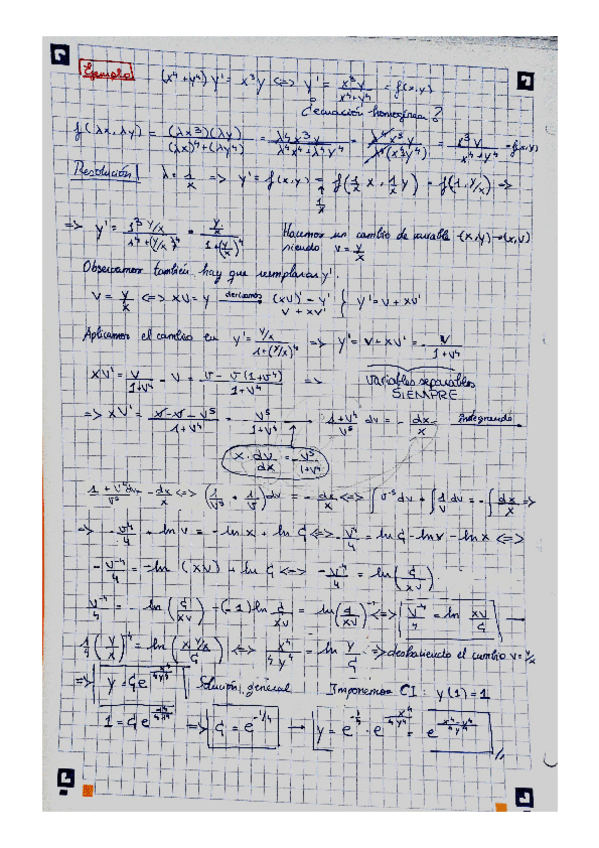 Ejemplo (x⁴+y⁴) y' = x³y <=> y' = x³y / (x⁴+y⁴) = f(x,y)
¿ecuación homogénea?
f(λx, λy) = (λx³)(λy) / ((λx)⁴+(λy⁴)) = λ⁴x³y / (λ⁴x⁴+λ⁴y⁴) = λ⁴x³y / (λ⁴(x⁴y⁴)) = x³y / (x⁴+y⁴) = f(x,y)
Resolución λ = 1/x => y' = f(x,y) = f(1/x x, 1/x y) = f(1, y/x) =>
1/x
=> y' = 1³ y/x / (1⁴+(y/x)⁴) = y/x / (1+(y/x)⁴) Hacemos un cambio de variable (x,y)→(x,v)
siendo v = y/x
Observamos también hay que reemplazar y'.
v = y/x <=> xv = y derivamos (xv)' = y' { y' = v + xv'
v + xv'
Aplicamos el cambio en y' = y/x / (1+(y/x)⁴) => y' = v + xv' = v / (1+v⁴)
xv' = v/(1+v⁴) - v = (v - v(1+v⁴))/(1+v⁴) => variables separables
SIEMPRE
=> xv' = (v - v - v⁵)/(1+v⁴) = -v⁵/(1+v⁴) → (1+v⁴)/v⁵ dv = -dx/x integrando
x · dv/dx = -v⁵/(1+v⁴)
(1+v⁴)/v⁵ dv = -dx/x <=> (1/v⁵ + 1/v) dv = -dx/x <=> ∫v⁻⁵ dv + ∫1/v dv = -∫dx/x =>
=> -v⁻⁴/4 + ln v = -ln x + ln C₁ <=> -v⁻⁴/4 = ln C₁ - ln v - ln x <=>
-v⁻⁴/4 = -ln (xv) + ln C₁ <=> -v⁻⁴/4 = ln (C₁/xv)
v⁻⁴/4 = -ln (C₁/xv) = (-1) ln C₁/xv = ln (C₁/xv)⁻¹ <=> v⁻⁴/4 = ln xv/C₁ →
1/4 (y/x)⁻⁴ = ln (x y/x / C₁) <=> x⁴/4y⁴ = ln y/C₁ => deshaciendo el cambio v = y/x
=> y = C₁e^(x⁴/4y⁴) Solución general Imponemos CI: y(1) = 1
1 = C₁e^(1⁴/4·1⁴) => C₁ = e^(-1/4) → y = e^(-1/4) · e^(x⁴/4y⁴) = e^((x⁴-y⁴)/4y⁴)